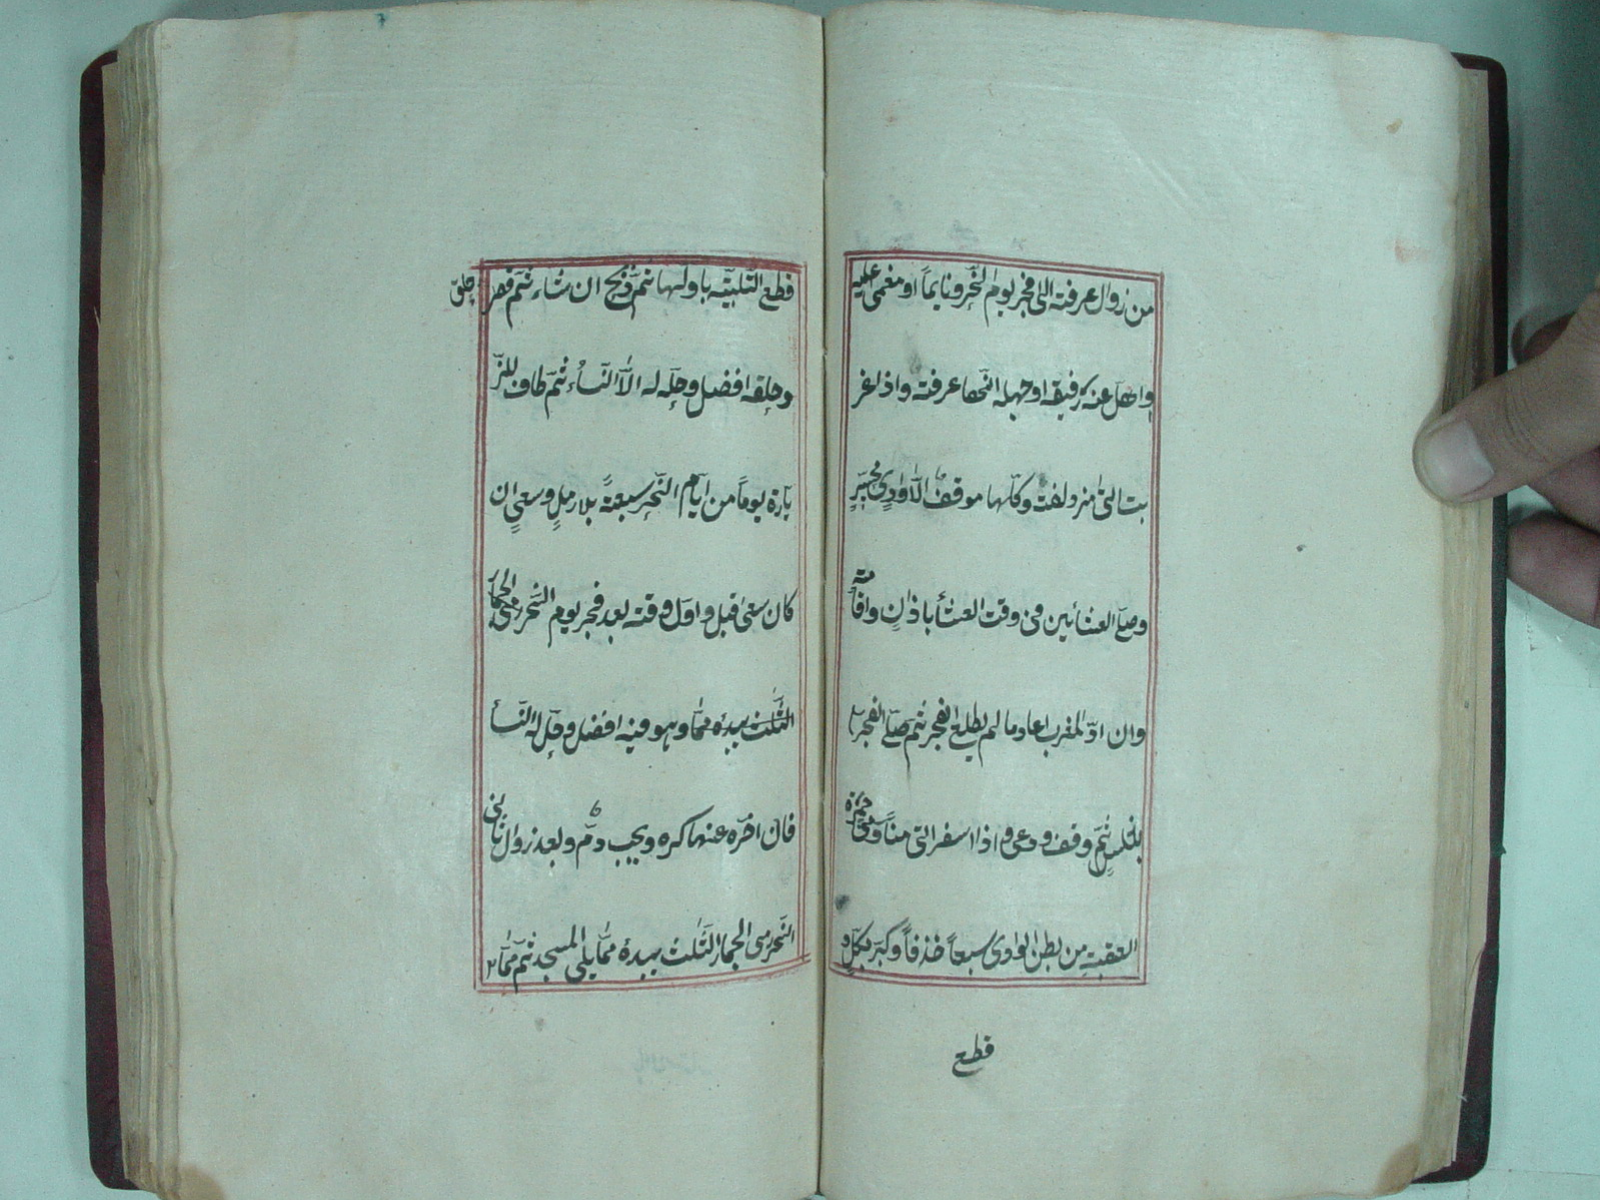 من زوال عرفته الى فجر يوم النحر ونايماً او مغمى عليه
واهل عنه رفيقه او جهله انها عرفته واذا غر
بت اتى مزدلفته وكلها موقف الا وادى محسر
وصلى العشائين فى وقت العشأ باذان واقامته
وان ادى المغرب اعاد ما لم يطلع الفجر ثم صلى الفجر
بغلس ثم وقف ودعى واذا اسفر اتى منا ورمى جمرة
العقبته من بطن الوادى سبعاً خذفاً وكبر بكل و
قطع
قطع التلبيته باولها ثم ذبح ان شاء ثم قصر او حلق
وحلقه افضل وحل له الا النسأ ثم طاف للز
يارة يوماً من ايام النحر سبعةً بلا رمل وسعى ان
كان سعى قبل واول وقته بعد فجر يوم النحر
الثلث يبدء مما وهو فيه افضل وحل له النسأ
فان اخره عنها كره ويجب دم وبعد زوال ثانى
النحر رمى الجمار الثلث يبدء مما يلى المسجد ثم مما